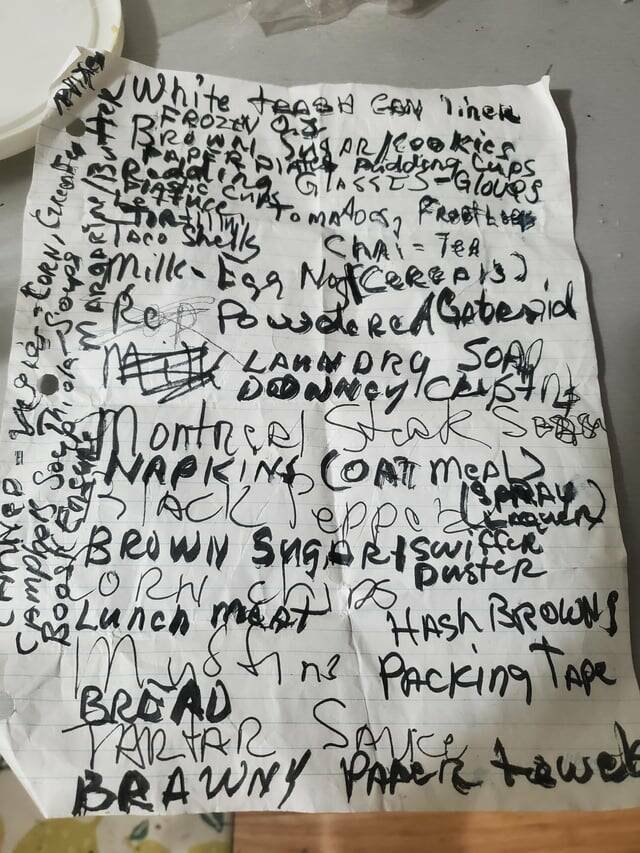 White TRASH CAN liner
FROZEN
BROWN SUGAR/COOKIES
PAPER PLATES Pudding Cups
Reading GLASSES - Gloves
PLASTIC CUPS
Lettuce, TOMATOES,
TORTILLA
TACO Shells CHAI = TEA
Milk - Egg Nog (CEREALS)
Powdered Gatoraid
LAUNDRY SOAP
DOWNEY CRYSTALS
Montreal Steak
NAPKINS (OATMEAL)
Black Pepper (SPRAY
BROWN SUGAR/SWIFFER
DUSTER
CORN Chips
Lunch meat HASH BROWNS
Muffins PACKING TAPE
BREAD
TARTAR SAUCE
BRAWNY PAPER towels
MARGARINE/Butter
CANNED = Vegis = CORN,
CAMPBELL Soups